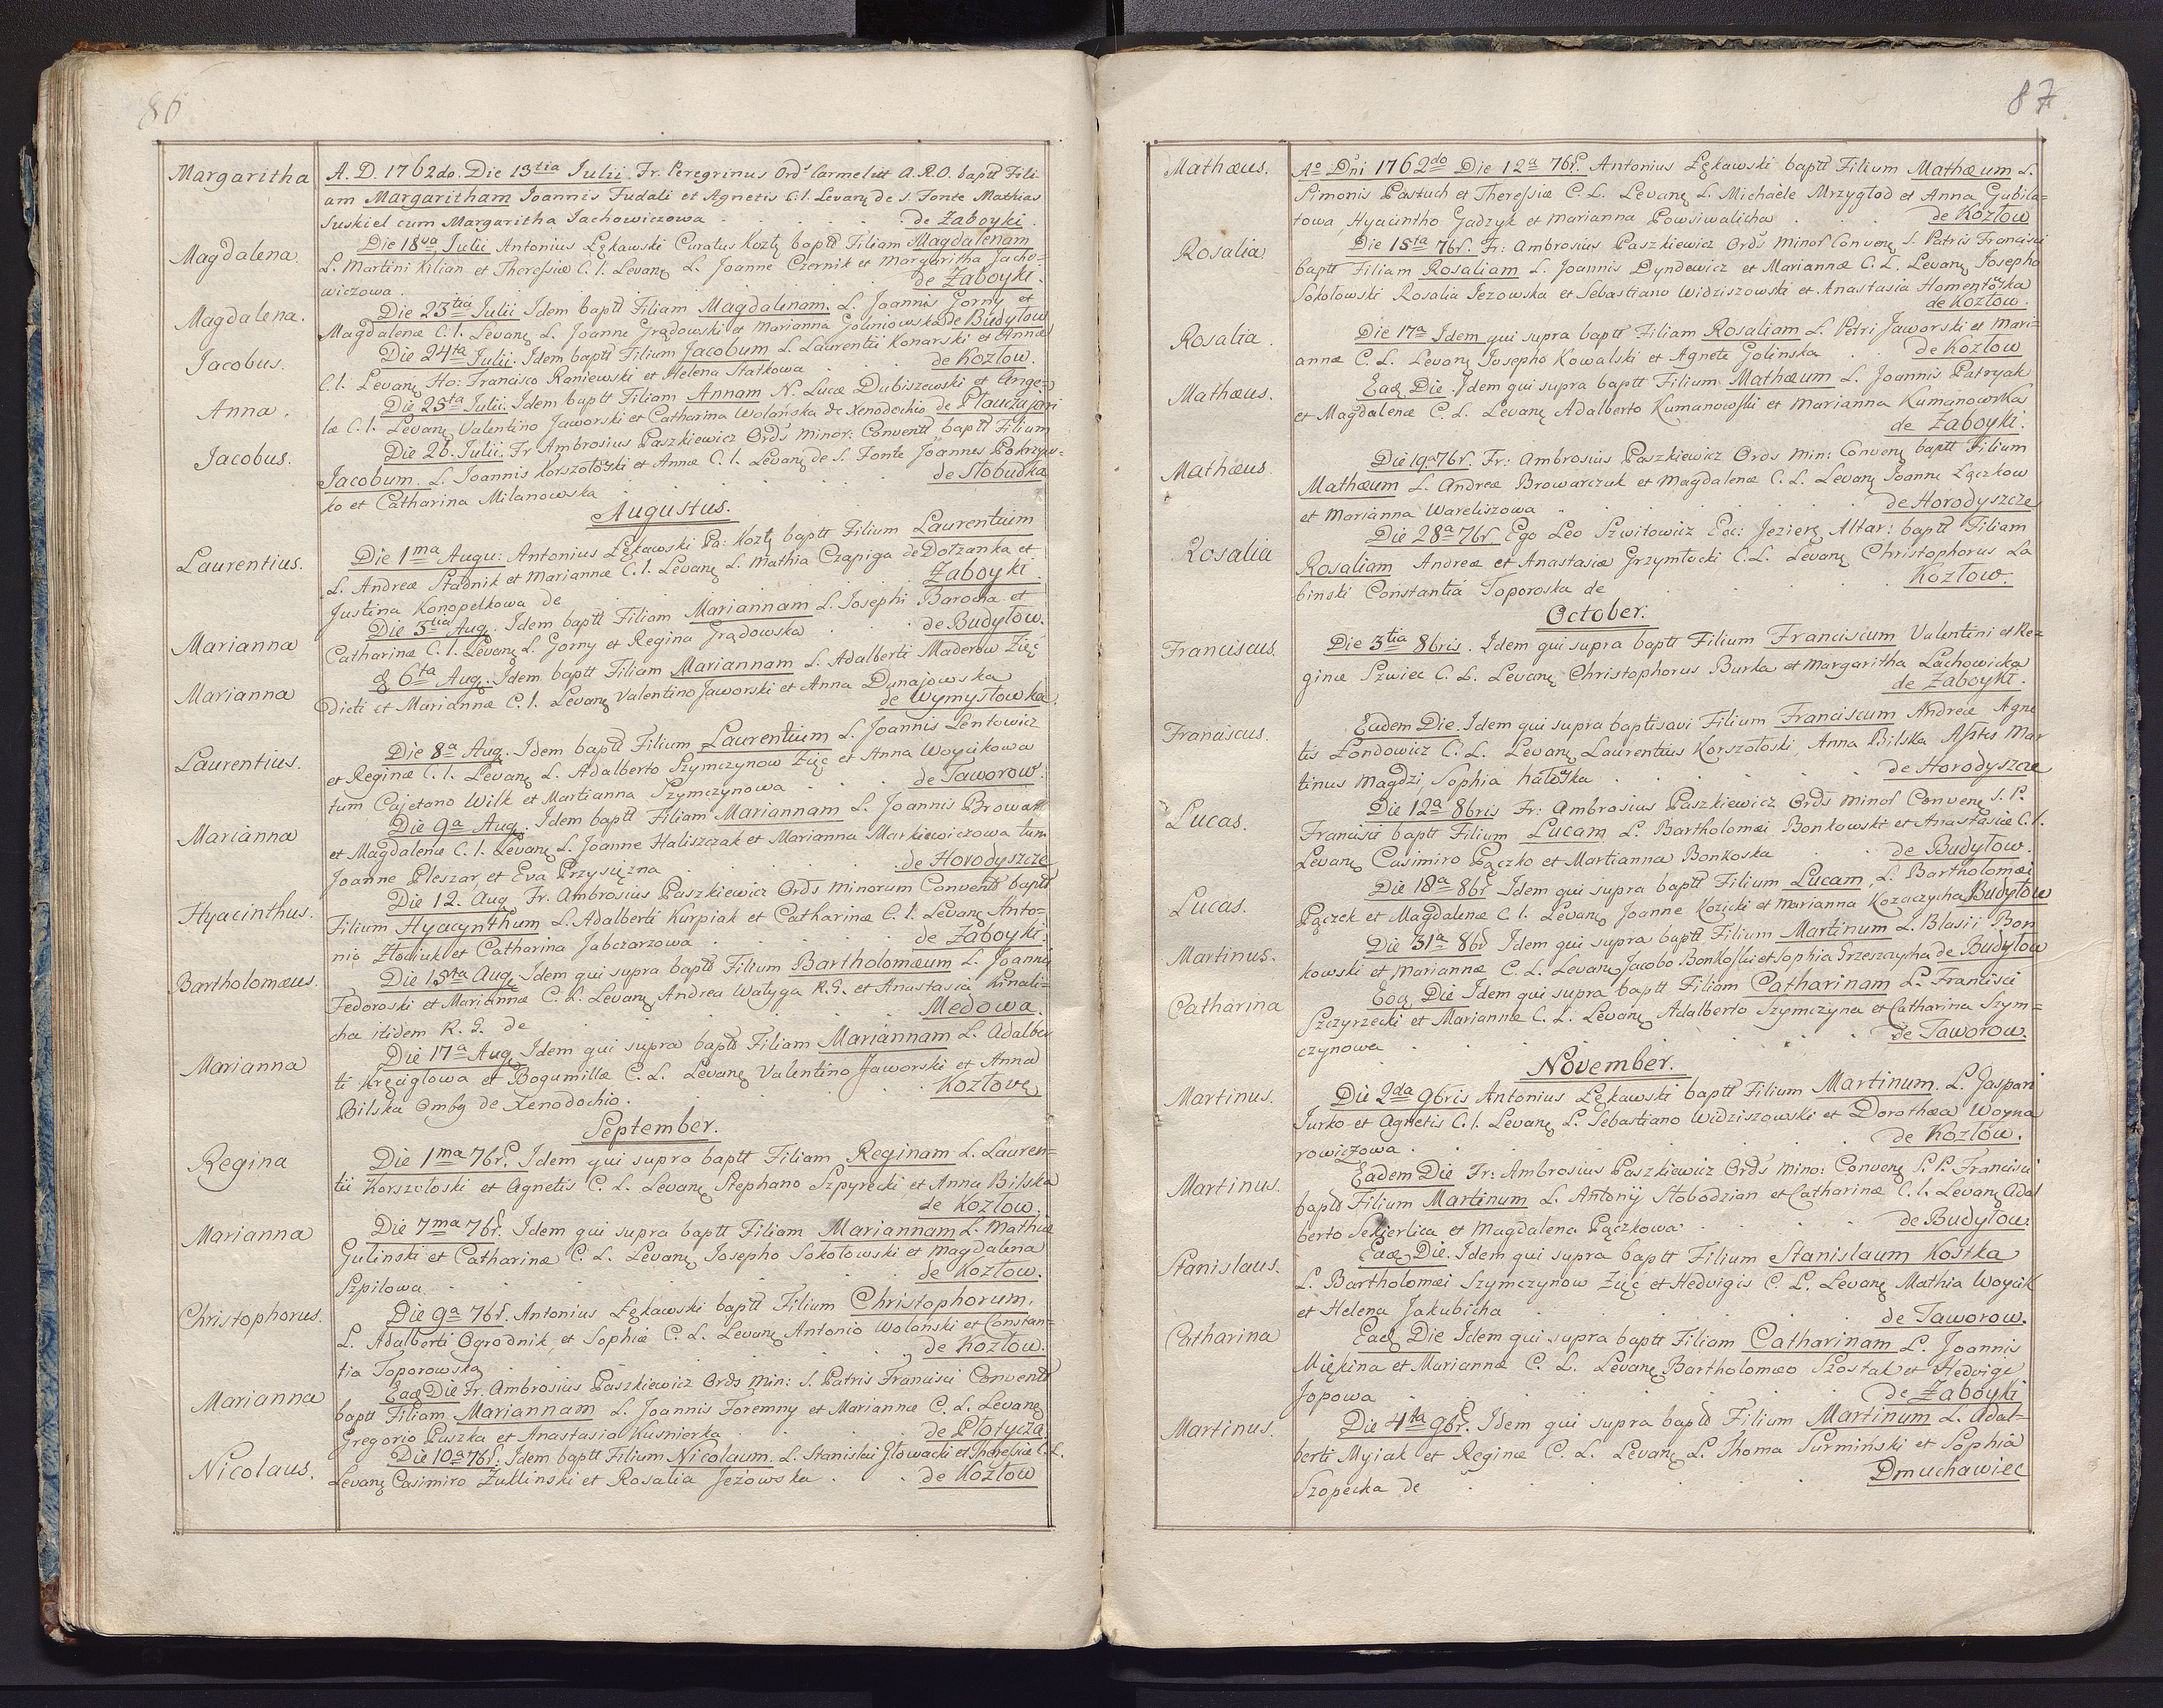 86
Margaritha
A. D. 1762do. Die 13tia Julii Fr. Peregrinus Ords Carmelitt A.R.O. baptt Fili-
am Margaritham Joannis Fudali et Agnetis C.l. Levanę de S. Fonte Mathias
Suskiel cum Margaritha Jachowiczowa . . . de Zaboyki
Magdalena.
Die 18va Julii Antonius Łękawski Curatus Kozlę baptt Filiam Magdalenam
L. Martini Kilian et Theressiæ C.l. Levanę L. Joanne Czernik et Margaritha Jacho-
wiczowa . de Zaboyki.
Magdalena.
Die 23tia Julii Idem baptt Filiam Magdalenam. L. Joannis Gorny et
Magdalenæ C.l. Levanę L. Joanne Grądowski et Marianna Goliniowska de Budyłow
Jacobus.
Die 24ta Julii. Idem baptt Filium Jacobum L. Laurentii Konarski et Annæ
C.l. Levanę Ho: Francisco Raniewski et Helena Statkowa . de Kozłow.
Anna.
Die 25ta Julii. Idem baptt Filiam Annam N. Lucæ Dubiszewski et Ange-
læ C.l. Levanę Valentino Jaworski et Catharina Wolańska de Xenodochio de
Jacobus.
Die 26. Julii. Fr Ambrosius Paszkiewicz Ords Minor: Conventt baptt Filium
Jacobum. L. Joannis Korszołoski et Annæ C.l. Levanę de S. Fonte Joannes Pokrzyw-
ko et Catharina Milanowska . . de Słobudka
Augustus.
Laurentius.
Die 1ma Augu: Antonius Łękawski Pa: Kozlę baptt Filium Laurentium
L. Andreæ Stadnik et Mariannæ C.l. Levanę L. Mathia Czapiga de Dołzanka et
Justina Konopelkowa de . . Zaboyki
Marianna
Die 3tia Aug. Idem baptt Filiam Mariannam L. Josephi Barowa et
Catharinæ C.l. Levanę L. Gorny et Regina Grądowska . . de Budyłow.
Marianna
6ta Aug. Idem baptt Filiam Mariannam L. Adalberti Maderow Zięć
Dicti et Mariannæ C.l. Levanę Valentino Jaworski et Anna Dunajowska
de Wymysłowka.
Laurentius.
Die 8a Aug. Idem baptt Filium Laurentium L. Joannis Lentowicz
et Reginæ C.l. Levanę L. Adalberto Szymczynow Zięć et Anna Woycikowa
tum Cajetano Wilk et Martianna Szymczynowa . . de Taworow.
Marianna
Die 9a Aug. Idem baptt Filiam Mariannam L. Joannis Browar
et Magdalenæ C.l. Levanę L. Joanne Haliszczak et Marianna Markiewiczowa tum
Joanne Pleszar et Eva Przysiężna . . de Horodyszcze
Hyacinthus.
Die 12. Aug Fr. Ambrosius Paszkiewicz Ords Minorum Conventt baptt
Filium Hyacynthum L. Adalberti Kurpiak et Catharinæ C.l. Levanę Anto-
nio Złociuk et Catharina Jabczarzowa . . de Zaboyki.
Bartholomæus.
Die 15ta Aug. Idem qui supra baptt Filium Bartholomæum L. Joannis
Fedoroski et Mariannæ C. L. Levanę Andrea Watyga R.G. et Anastasia Kinali-
cha itidem R. G. de . . Medowa.
Marianna
Die 17a Aug Idem qui supra baptt Filiam Mariannam L. Adalber
ti Kręciglowa et Bogumillæ C. L. Levanę Valentino Jaworski et Anna
Bilska Ambę de Xenodochio. . . Kozłovę
September.
Regina
Die 1ma 7br. Idem qui supra baptt Filiam Reginam L. Lauren-
tii Korszołoski et Agnetis C. L. Levanę Stephano Szpyrecki et Anna Bilska
de Kozłow.
Marianna
Die 7ma 7br. Idem qui supra baptt Filiam Mariannam L. Mathiæ
Gulinski et Catharinæ C. L. Levanę Josepho Sokołowski et Magdalena
Szpilowa . . de Kozłow.
Christophorus.
Die 9a 7br. Antonius Łękawski baptt Filium Christophorum.
L. Adalberti Ogrodnik et Sophiæ C. L. Levanę Antonio Wolański et Constan-
tia Toporowska . . de Kozłow.
Marianna
Eadę Die Fr. Ambrosius Paszkiewicz Ords Min: S. Patris Francisci Conventt
baptt Filiam Mariannam L. Joannis Foremny et Mariannæ C. L. Levanę
Gregorio Puszka et Anastasia Kusnierka . . de Płotycza
Nicolaus.
Die 10a 7br. Idem baptt Filium Nicolaum. L. Stanislai Głowacki et Theresiæ C. L.
Levanę Casimiro Żuklinski et Rosalia Jeżowska . . de Kozłow
87
Mathæus.
Ao Dni 1762do Die 12a 7br. Antonius Łękawski baptt Filium Mathæum L.
Simonis Pastuch et Theressiæ C. L. Levanę L. Michaële Mrzygłod et Anna Gubila-
towa, Hyacintho Gadzyk et Marianna Powsiwalicha . de Kozłow
Rosalia
Die 15ta 7br. Fr: Ambrosius Paszkiewicz Ords Minor Convenę S. Patris Francisci
baptt Filiam Rosaliam L. Joannis Dyndewicz et Mariannæ C. L. Levanę Josepho
Sokołowski Rosalia Jezowska et Sebastiano Widziszowski et Anastasia Homentoska
de Kozłow.
Rosalia.
Die 17a Idem qui supra baptt Filiam Rosaliam L. Petri Jaworski et Mari-
annæ C. L. Levanę Josepho Kowalski et Agnete Golinska . . de Kozłow
Mathæus.
Eadę Die. Idem qui supra baptt Filium Mathæum L. Joannis Patryak
et Magdalenæ C. L. Levanę Adalberto Kumanowski et Marianna Kumanowska
de Zaboyki.
Mathæus.
Die 19a 7br. Fr: Ambrosius Paszkiewicz Ords Min: Convenę baptt Filium
Mathæum L. Andreæ Browarczuk et Magdalenæ C. L. Levanę Joanne Łączkow
et Marianna Wareliszowa . . de Horodyszcze
Rosalia
Die 28a 7br. Ego Leo Szwitowicz Ec: Jezierę Altar: baptt Filiam
Rosaliam Andreæ et Anastasiæ Grzymłocki C.L. Levanę Christophorus La
binski Constantia Toporoska de . . Kozłow.
October.
Franciscus.
Die 3tia 8bris. Idem qui supra baptt Filium Franciscum Valentini et Re-
ginæ Szwiec C. L. Levanę Christophorus Burka et Margaritha Lachowicka
de Zaboyki.
Franciscus.
Eadem Die. Idem qui supra baptisavi Filium Franciscum Andreæ Agne
tis Londowicz C. L. Levanę Laurentius Korszołoski, Anna Bilska Asstes Mar
tinus Magdzi, Sophia hałoska . . de Horodyszcze
Lucas.
Die 12a 8bris Fr: Ambrosius Paszkiewicz Ords Minor Convenę S. P.
Francisci baptt Filium Lucam L. Bartholomæi Bonkowski et Anastasiæ C.l.
Levanę Casimiro Pączko et Martianna Bonkoska . . de Budyłow.
Lucas.
Die 18a 8br Idem qui supra baptt Filium Lucam, L. Bartholomæi
Pączek et Magdalenæ C. l. Levanę Joanne Kozicki et Marianna Kozaczycha Budyłow
Martinus.
Die 31a 8br Idem qui supra baptt Filium Martinum L. Blasii Bon
kowski et Mariannæ C. L. Levanę Jacobo Bonkoski et Sophia Grzeszczycha de Budyłow
Catharina
Eadę Die Idem qui supra baptt Filiam Catharinam L. Francisci
Szczyrzecki et Mariannæ C. L. Levanę Adalberto Szymczyna et Catharina Szym-
czynowa . . de Taworow.
November.
Martinus.
Die 2da 9bris Antonius Łękawski baptt Filium Martinum. L. Gaspari
Jurko et Agnetis C.l. Levanę L. Sebastiano Widziszowski et Dorothæa Woyna
rowiczowa . . de Kozłow.
Martinus.
Eadem Die Fr: Ambrosius Paszkiewicz Ords Mino: Convenę S. P. Francisci
baptt Filium Martinum L. Antonij Słobodzian et Catharinæ C. l. Levanę Adal
berto Sekierlica et Magdalena Pączkowa . . de Budyłow
Stanislaus.
Eadę Die. Idem qui supra baptt Filium Stanislaum Kostka
L. Bartholomæi Szymczynow Zięć et Hedvigis C. L. Levanę Mathia Woycik
et Helena Jakubicha . . de Taworow.
Catharina
Eadę Die Idem qui supra baptt Filiam Catharinam L. Joannis
Miękina et Mariannæ C. L. Levanę Bartholomæo Szostak et Hedvige
Jopowa . . de Zaboyki
Martinus.
Die 4ta 9br. Idem qui supra baptt Filium Martinum L. Adal-
berti Myiak et Reginæ C. L. Levanę L. Thoma Surmiński et Sophia
Szopecka de . . Dmuchawiec